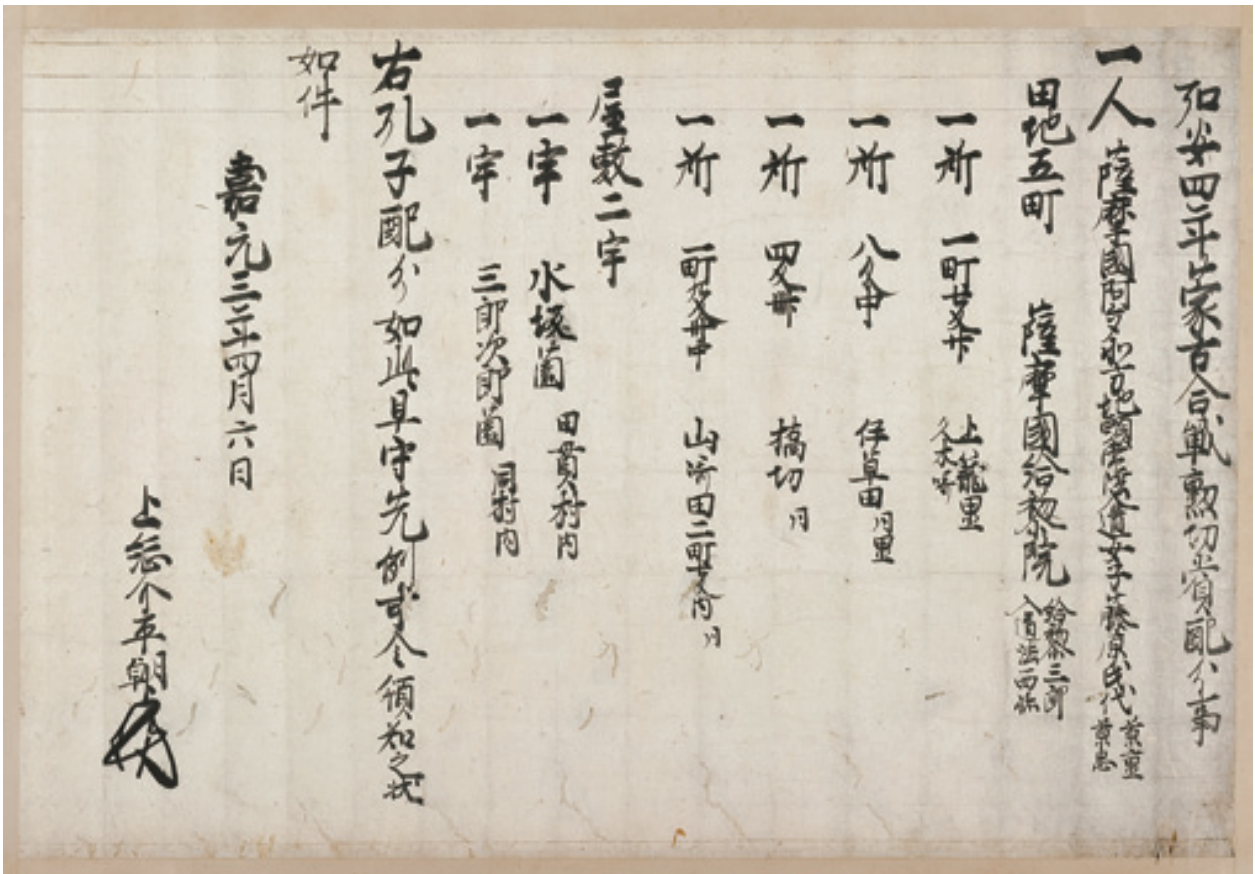 弘安四年蒙古合戦勲功賞配分事
一人 薩摩國 女子藤原氏代
田地五町 薩摩國給黎院 給黎三郎入道法西跡
一所 一町 上籠里
一所 八 中 伊草田 同里
一所 四 搞切 同
一所 一町 中 山 田二町 内 同
屋敷二宇
一宇 水 薗 田貫村内
一宇 三郎次郎薗 同村内
右孔子配分如此早守先例可令領知之状
如件
嘉元三年四月六日
上総介平朝臣